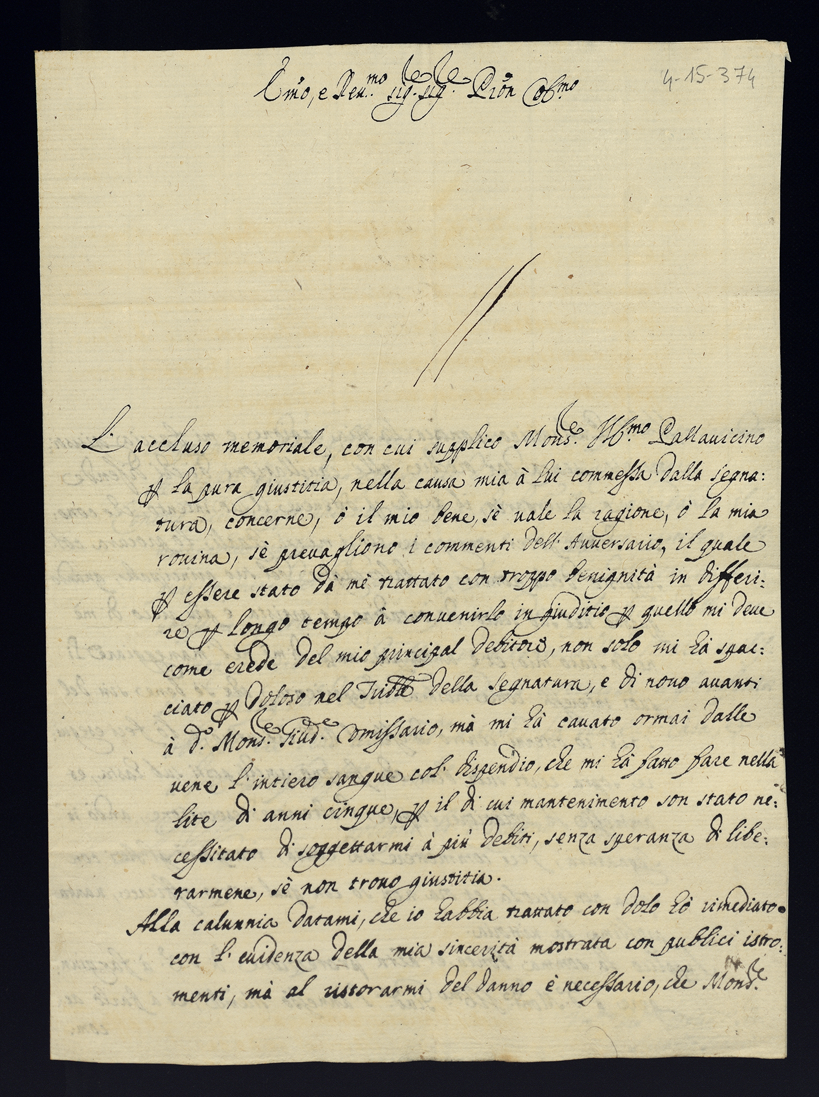 4-15-374
Emo, e Reu.mo sig. sig. Pron Col.mo
L'accluso memoriale, con cui supplico Mons.e Ill.mo Pallavicino
ꝑ la pura giustitia, nella causa mia à lui commessa dalla segna:
tura, concerne, ò il mio bene, sè vale la ragione, ò la mia
rovina, sè prevagliono i commenti dell'Avversario, il quale
ꝑ essere stato dà mè trattato con troppo benignità in differi:
re ꝑ longo tempo à convenirlo in giuditio ꝑ quello mi deve
come erede del mio principal debitore, non solo mi hà spac:
ciato ꝑ doloso nel Trible della segnatura, e di novo avanti
à d.o Mons.e Giud.e Comissario, mà mi hà cavato ormai dalle
vene l'intiero sangue col dispendio, che mi hà fatto fare nella
lite di anni cinque, ꝑ il di cui mantenimento son stato ne:
cessitato di soggettarmi à più debiti, senza speranza di libe:
rarmene, sè non trovo giustitia.
Alla calunnia datami, che io habbia trattato con dolo hò rimediato
con l'evidenza della mia sincerità mostrata con publici istro:
menti, mà al ristorarmi del danno è necessario, che Mons.e